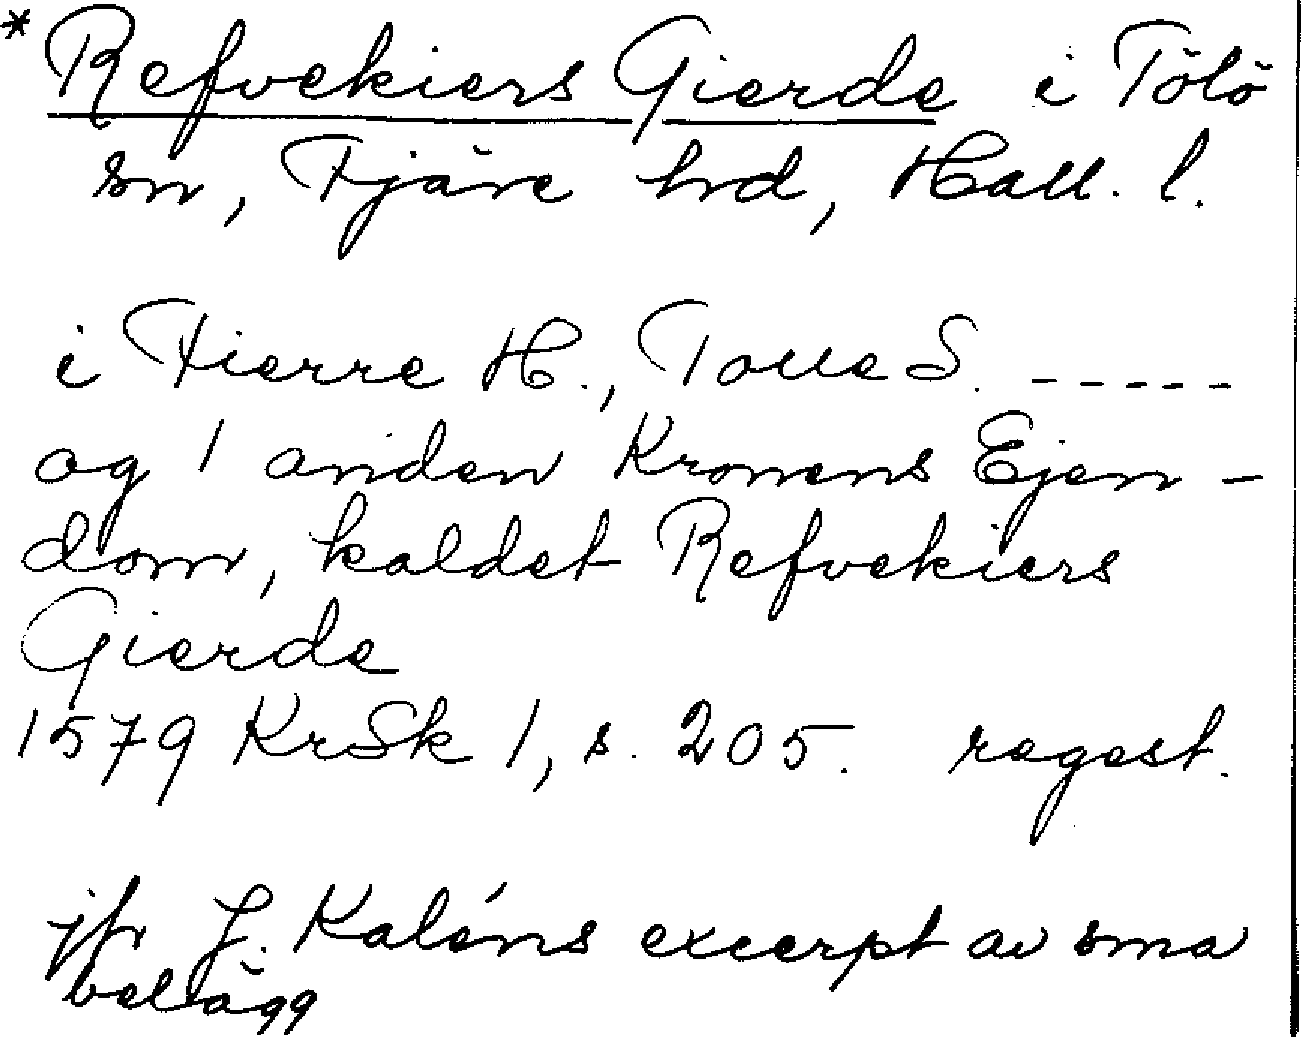 * Refvekiers Gierde i Tölö
sn, Fjäre hd, Hall. l.
i Fierre H., Tolle S. - - - - -
og 1 anden Kronens Ejen-
dom, kaldet Refvekiers
Gierde
1579 KrSk 1, s. 205. regest.
jfr J. Kaléns excerpt av sma
belägg